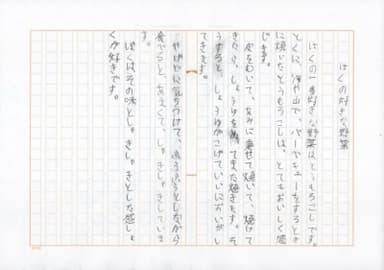 ぼくの好きな野菜
ぼくの一番好きな野菜はとうもろこしです。
とくに、海や山で、バーベキューをするとき
に焼いたとうもろこしは、とてもおいしく感
じます。
皮をむいて、あみに乗せて焼いて、焼けて
きたら、しょうゆを てまた焼きます。そ
うすると、しょうゆがこげていいにおいがし
てきます。
やけどに気をつけて、ふうふうとしながら
食べると、あまくて、しゃきしゃきしていま
す。
ぼくはその味としゃきしゃきとした感しょ
くが好きです。